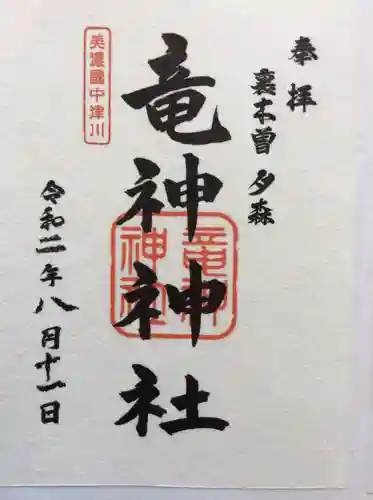 奉拝
裏木曽 夕森
竜神神社
美濃國中津川
竜神
神社
令和二年八月十一日